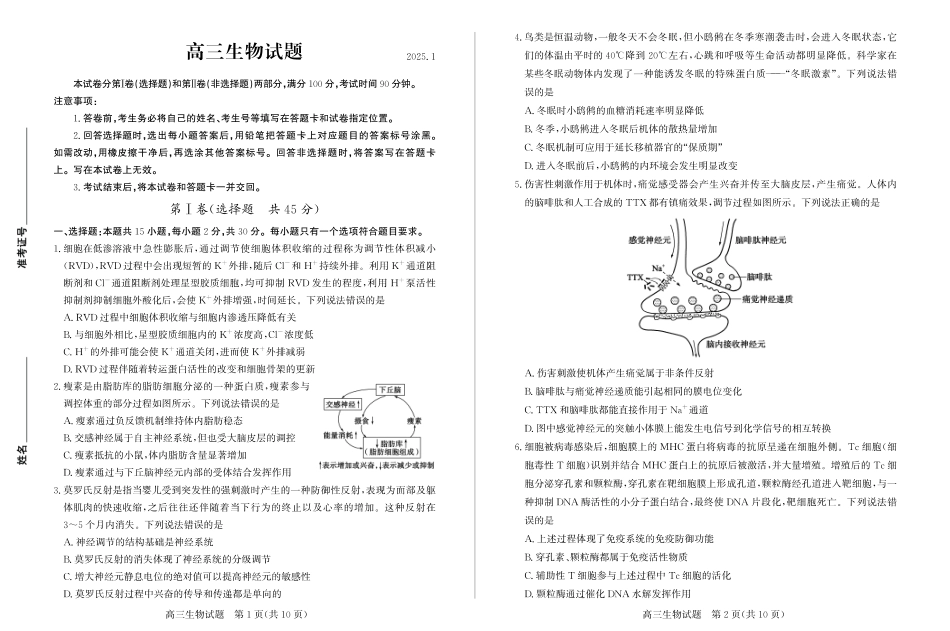 高三生物试题
2025.1
本试卷分第Ⅰ卷(选择题)和第Ⅱ卷(非选择题)两部分,满分100分,考试时间90分钟。
注意事项:
1.答卷前,考生务必将自己的姓名、考生号等填写在答题卡和试卷指定位置。
2.回答选择题时,选出每小题答案后,用铅笔把答题卡上对应题目的答案标号涂黑。
如需改动,用橡皮擦干净后,再选涂其他答案标号。回答非选择题时,将答案写在答题卡
上。写在本试卷上无效。
3.考试结束后,将本试卷和答题卡一并交回。
第Ⅰ卷(选择题 共45分)
一、选择题:本题共15小题,每小题2分,共30分。每小题只有一个选项符合题目要求。
1.细胞在低渗溶液中急性膨胀后,通过调节使细胞体积收缩的过程称为调节性体积减小
(RVD),RVD过程中会出现短暂的K⁺外排,随后Cl⁻和H⁺持续外排。利用K⁺通道阻
断剂和Cl⁻通道阻断剂处理星型胶质细胞,均可抑制RVD发生的程度,利用H⁺泵活性
抑制剂抑制细胞外酸化后,会使K⁺外排增强,时间延长。下列说法错误的是
A.RVD过程中细胞体积收缩与细胞内渗透压降低有关
B.与细胞外相比,星型胶质细胞内的K⁺浓度高,Cl⁻浓度低
C.H⁺的外排可能会使K⁺通道关闭,进而使K⁺外排减弱
D.RVD过程伴随着转运蛋白活性的改变和细胞骨架的更新
2.瘦素是由脂肪库的脂肪细胞分泌的一种蛋白质,瘦素参与
调控体重的部分过程如图所示。下列说法错误的是
A.瘦素通过负反馈机制维持体内脂肪稳态
B.交感神经属于自主神经系统,但也受大脑皮层的调控
C.瘦素抵抗的小鼠,体内脂肪含量显著增加
D.瘦素通过与下丘脑神经元内部的受体结合发挥作用
下丘脑
交感神经↑
摄食↓
瘦素
能量消耗↑
↓脂肪库↑
(脂肪细胞组成)
↑表示增加或兴奋,↓表示减少或抑制
3.莫罗氏反射是指当婴儿受到突发性的强刺激时产生的一种防御性反射,表现为面部及躯
体肌肉的快速收缩,之后往往还伴随着当下行为的终止以及心率的增加。这种反射在
3～5个月内消失。下列说法错误的是
A.神经调节的结构基础是神经系统
B.莫罗氏反射的消失体现了神经系统的分级调节
C.增大神经元静息电位的绝对值可以提高神经元的敏感性
D.莫罗氏反射过程中兴奋的传导和传递都是单向的
高三生物试题 第1页(共10页)
准考证号
姓名
4.鸟类是恒温动物,一般冬天不会冬眠,但小鸱鸺在冬季寒潮袭击时,会进入冬眠状态,它
们的体温由平时的40℃降到20℃左右,心跳和呼吸等生命活动都明显降低。科学家在
某些冬眠动物体内发现了一种能诱发冬眠的特殊蛋白质——“冬眠激素”。下列说法错
误的是
A.冬眠时小鸱鸺的血糖消耗速率明显降低
B.冬季,小鸱鸺进入冬眠后机体的散热量增加
C.冬眠机制可应用于延长移植器官的“保质期”
D.进入冬眠前后,小鸱鸺的内环境会发生明显改变
5.伤害性刺激作用于机体时,痛觉感受器会产生兴奋并传至大脑皮层,产生痛觉。人体内
的脑啡肽和人工合成的TTX都有镇痛效果,调节过程如图所示。下列说法正确的是
感觉神经元
脑啡肽神经元
Na⁺
TTX
脑啡肽
痛觉神经递质
脑内接收神经元
A.伤害刺激使机体产生痛觉属于非条件反射
B.脑啡肽与痛觉神经递质能引起相同的膜电位变化
C.TTX和脑啡肽都能直接作用于Na⁺通道
D.图中感觉神经元的突触小体膜上能发生电信号到化学信号的相互转换
6.细胞被病毒感染后,细胞膜上的MHC蛋白将病毒的抗原呈递在细胞外侧。Tc细胞(细
胞毒性T细胞)识别并结合MHC蛋白上的抗原后被激活,并大量增殖。增殖后的Tc细
胞分泌穿孔素和颗粒酶,穿孔素在靶细胞膜上形成孔道,颗粒酶经孔道进入靶细胞,与一
种抑制DNA酶活性的小分子蛋白结合,最终使DNA片段化,靶细胞死亡。下列说法错
误的是
A.上述过程体现了免疫系统的免疫防御功能
B.穿孔素、颗粒酶都属于免疫活性物质
C.辅助性T细胞参与上述过程中Tc细胞的活化
D.颗粒酶通过催化DNA水解发挥作用
高三生物试题 第2页(共10页)